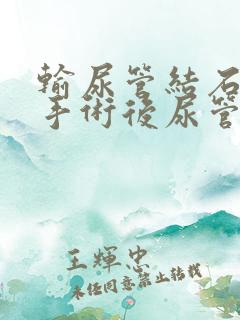 輸尿管結石
手術後尿管
王輝忠
未經同意禁止轉載